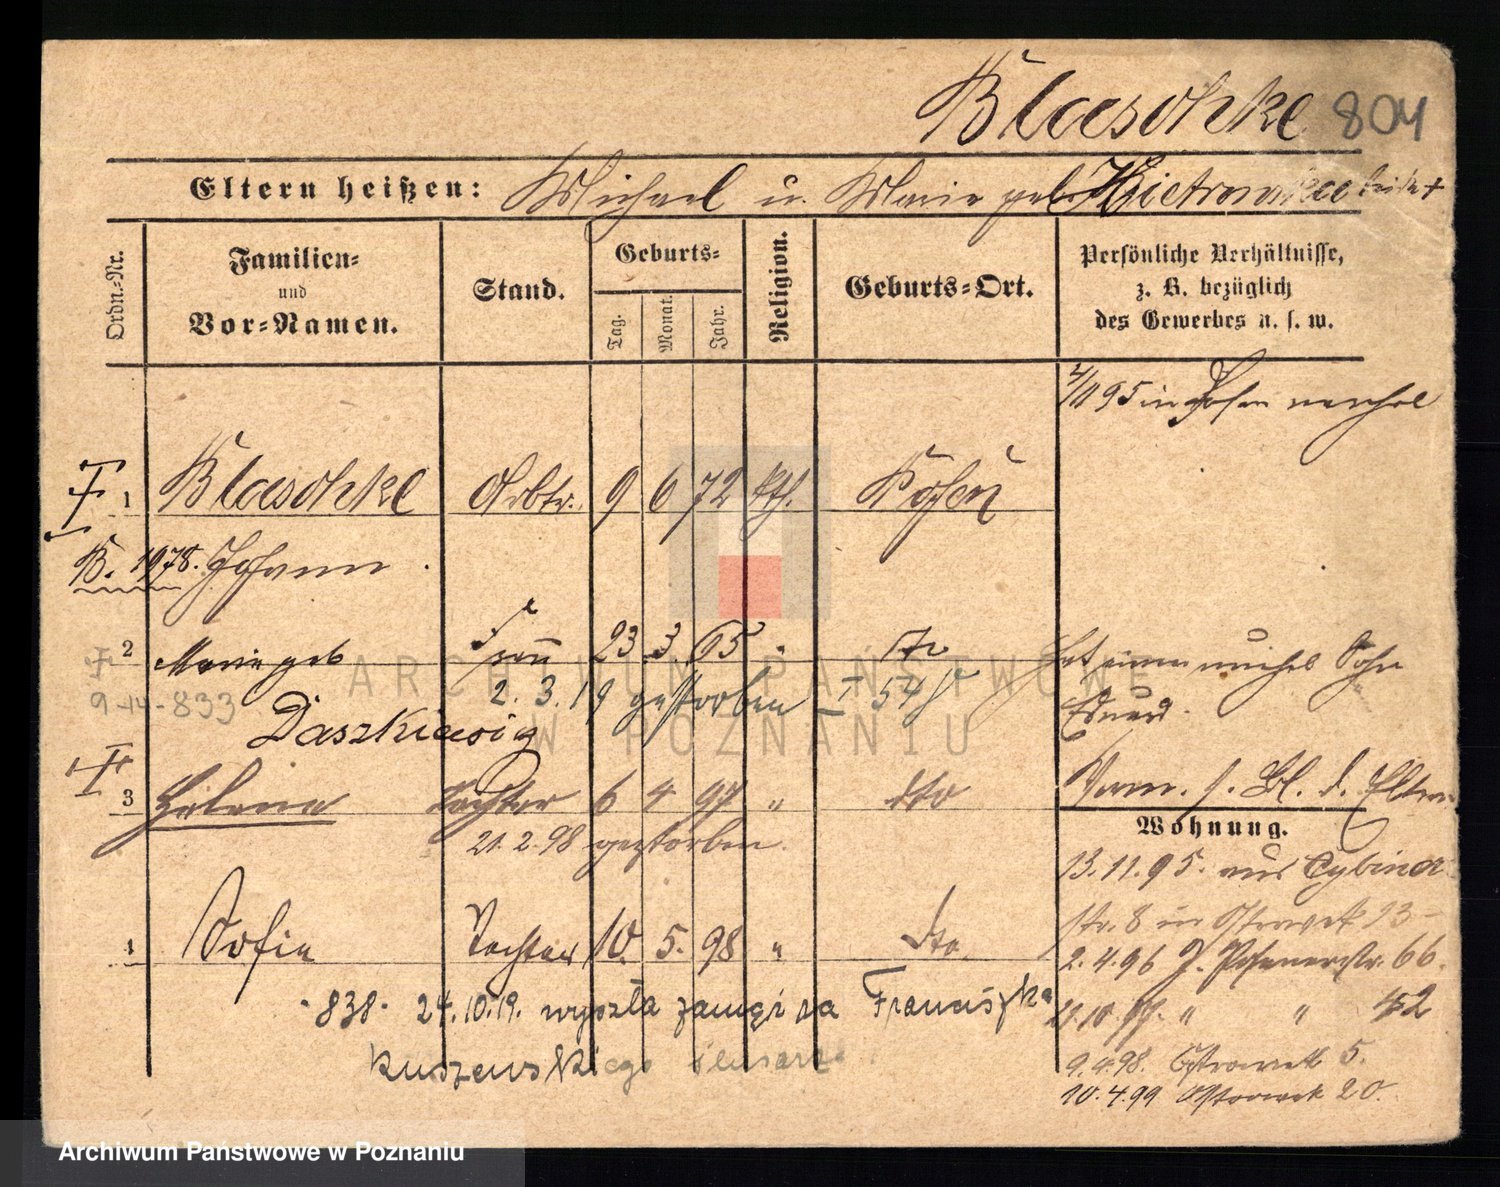 Blaeschke 804
Eltern heißen: Michael u. Marie geb. beide +
Ordn.-Nr.
Familien-
und
Vor-Namen.
Stand.
Geburts-
Tag.
Monat.
Jahr.
Religion.
Geburts-Ort.
Persönliche Verhältnisse,
z. B. bezüglich
des Gewerbes u. s. w.
4/11 95 in Posen
1 Blaeschke Arbtr. 9 6 72 kth. Posen
B. 1978. Johann
2 Marie geb Frau 23 3 65 " 
9-14-833
2. 3. 19 gestorben I 548
Daszkiewicz
hat einen Sohn
Eduard.
3 Helena Tochter 6 4 97 " dto
21.2.98 gestorben.
Verm. s. Bl. d. Eltern
Wohnung.
13.11.95. aus Cybina
str. 8 in Ostrowek 13
4 Sofie Tochter 10. 5. 98 " dto
2.4.96 J. Posenerstr. 66.
-838- 24.10.19. wyszła zamąż za Franciszka
11.10.97. " " 42
Kuszewskiego ślusarza
9.4.98. Ostrowek 5.
10.4.99 Ostrowek 20.
ARCHIWUM PAŃSTWOWE
W POZNANIU
Archiwum Państwowe w Poznaniu